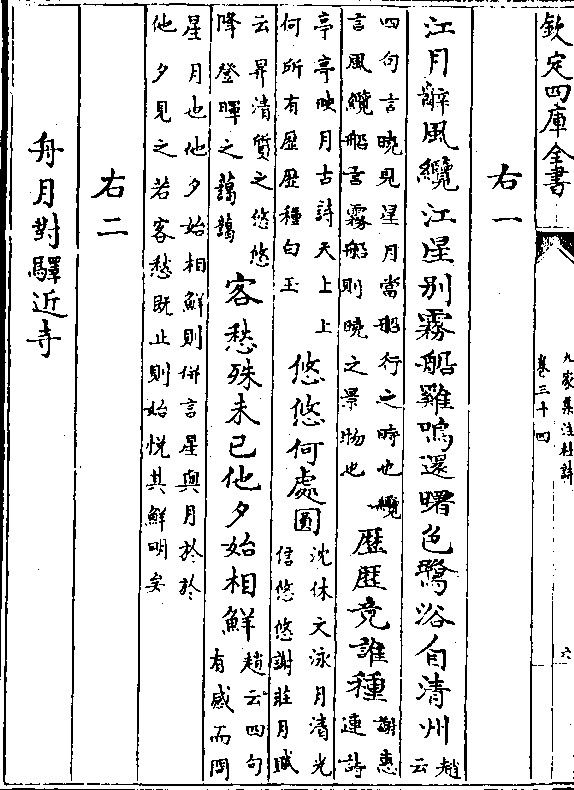 欽定四庫全書
九家集注杜詩
卷三十四
六
右一
江月辭風纜江星别霧船雞鳴還曙色鷺浴自清州
趙
云
四句言曉見星月當船行之時也纜
言風纜船言霧船則曉之景物也
歷歷竟誰種
謝惠
連詩
亭亭映月古詩天上上
何所有歷歷種白玉
悠悠何處圓
沈休文詠月清光
信悠悠謝莊月賦
云昇清質之悠悠
降登暉之藹藹
客愁殊未已他夕始相鮮
趙云四句
有感而問
星月也他夕始相鮮則併言星與月於於
他夕見之若客愁既止則始悅其鮮明矣
右二
舟月對驛近寺